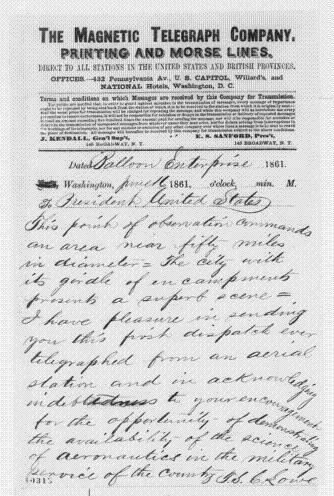 THE MAGNETIC TELEGRAPH COMPANY.
PRINTING AND MORSE LINES,
DIRECT TO ALL STATIONS IN THE UNITED STATES AND BRITISH PROVINCES.
OFFICES.—432 Pennsylvania Av., U. S. CAPITOL, Willard's, and
NATIONAL Hotels, Washington, D. C.
Terms and conditions on which Messages are received by this Company for Transmission.
J. KENDALL, Gen'l Sup't E. S. SANFORD, Pres't,
145 BROADWAY, N. Y. 145 BROADWAY, N. Y.
Dated Balloon Enterprise 1861.
Washington, June 16 1861, o'clock, min. M.
To President United States
This point of observation commands
an area near fifty miles
in diameter = The city with
its girdle of encampments
presents a superb scene =
I have pleasure in sending
you this first dispatch ever
telegraphed from an aerial
station and in acknowledging
indebtedness to your encouragement
for the opportunity of demonstrating
the availability of the science
of aeronautics in the military
service of the country T. S. C. Lowe